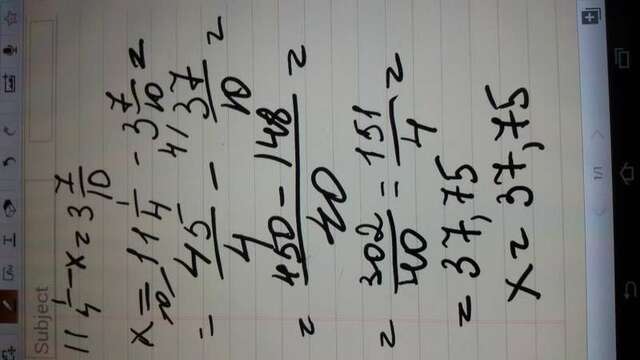 Subject
11 1/4 - x = 3 7/10
x = 11 1/4 - 3 7/10 =
= 10/ 45/4 - 4/ 37/10 =
= 450 - 148 / 40 =
= 302/40 = 151/4 =
= 37,75
x = 37,75
1/1